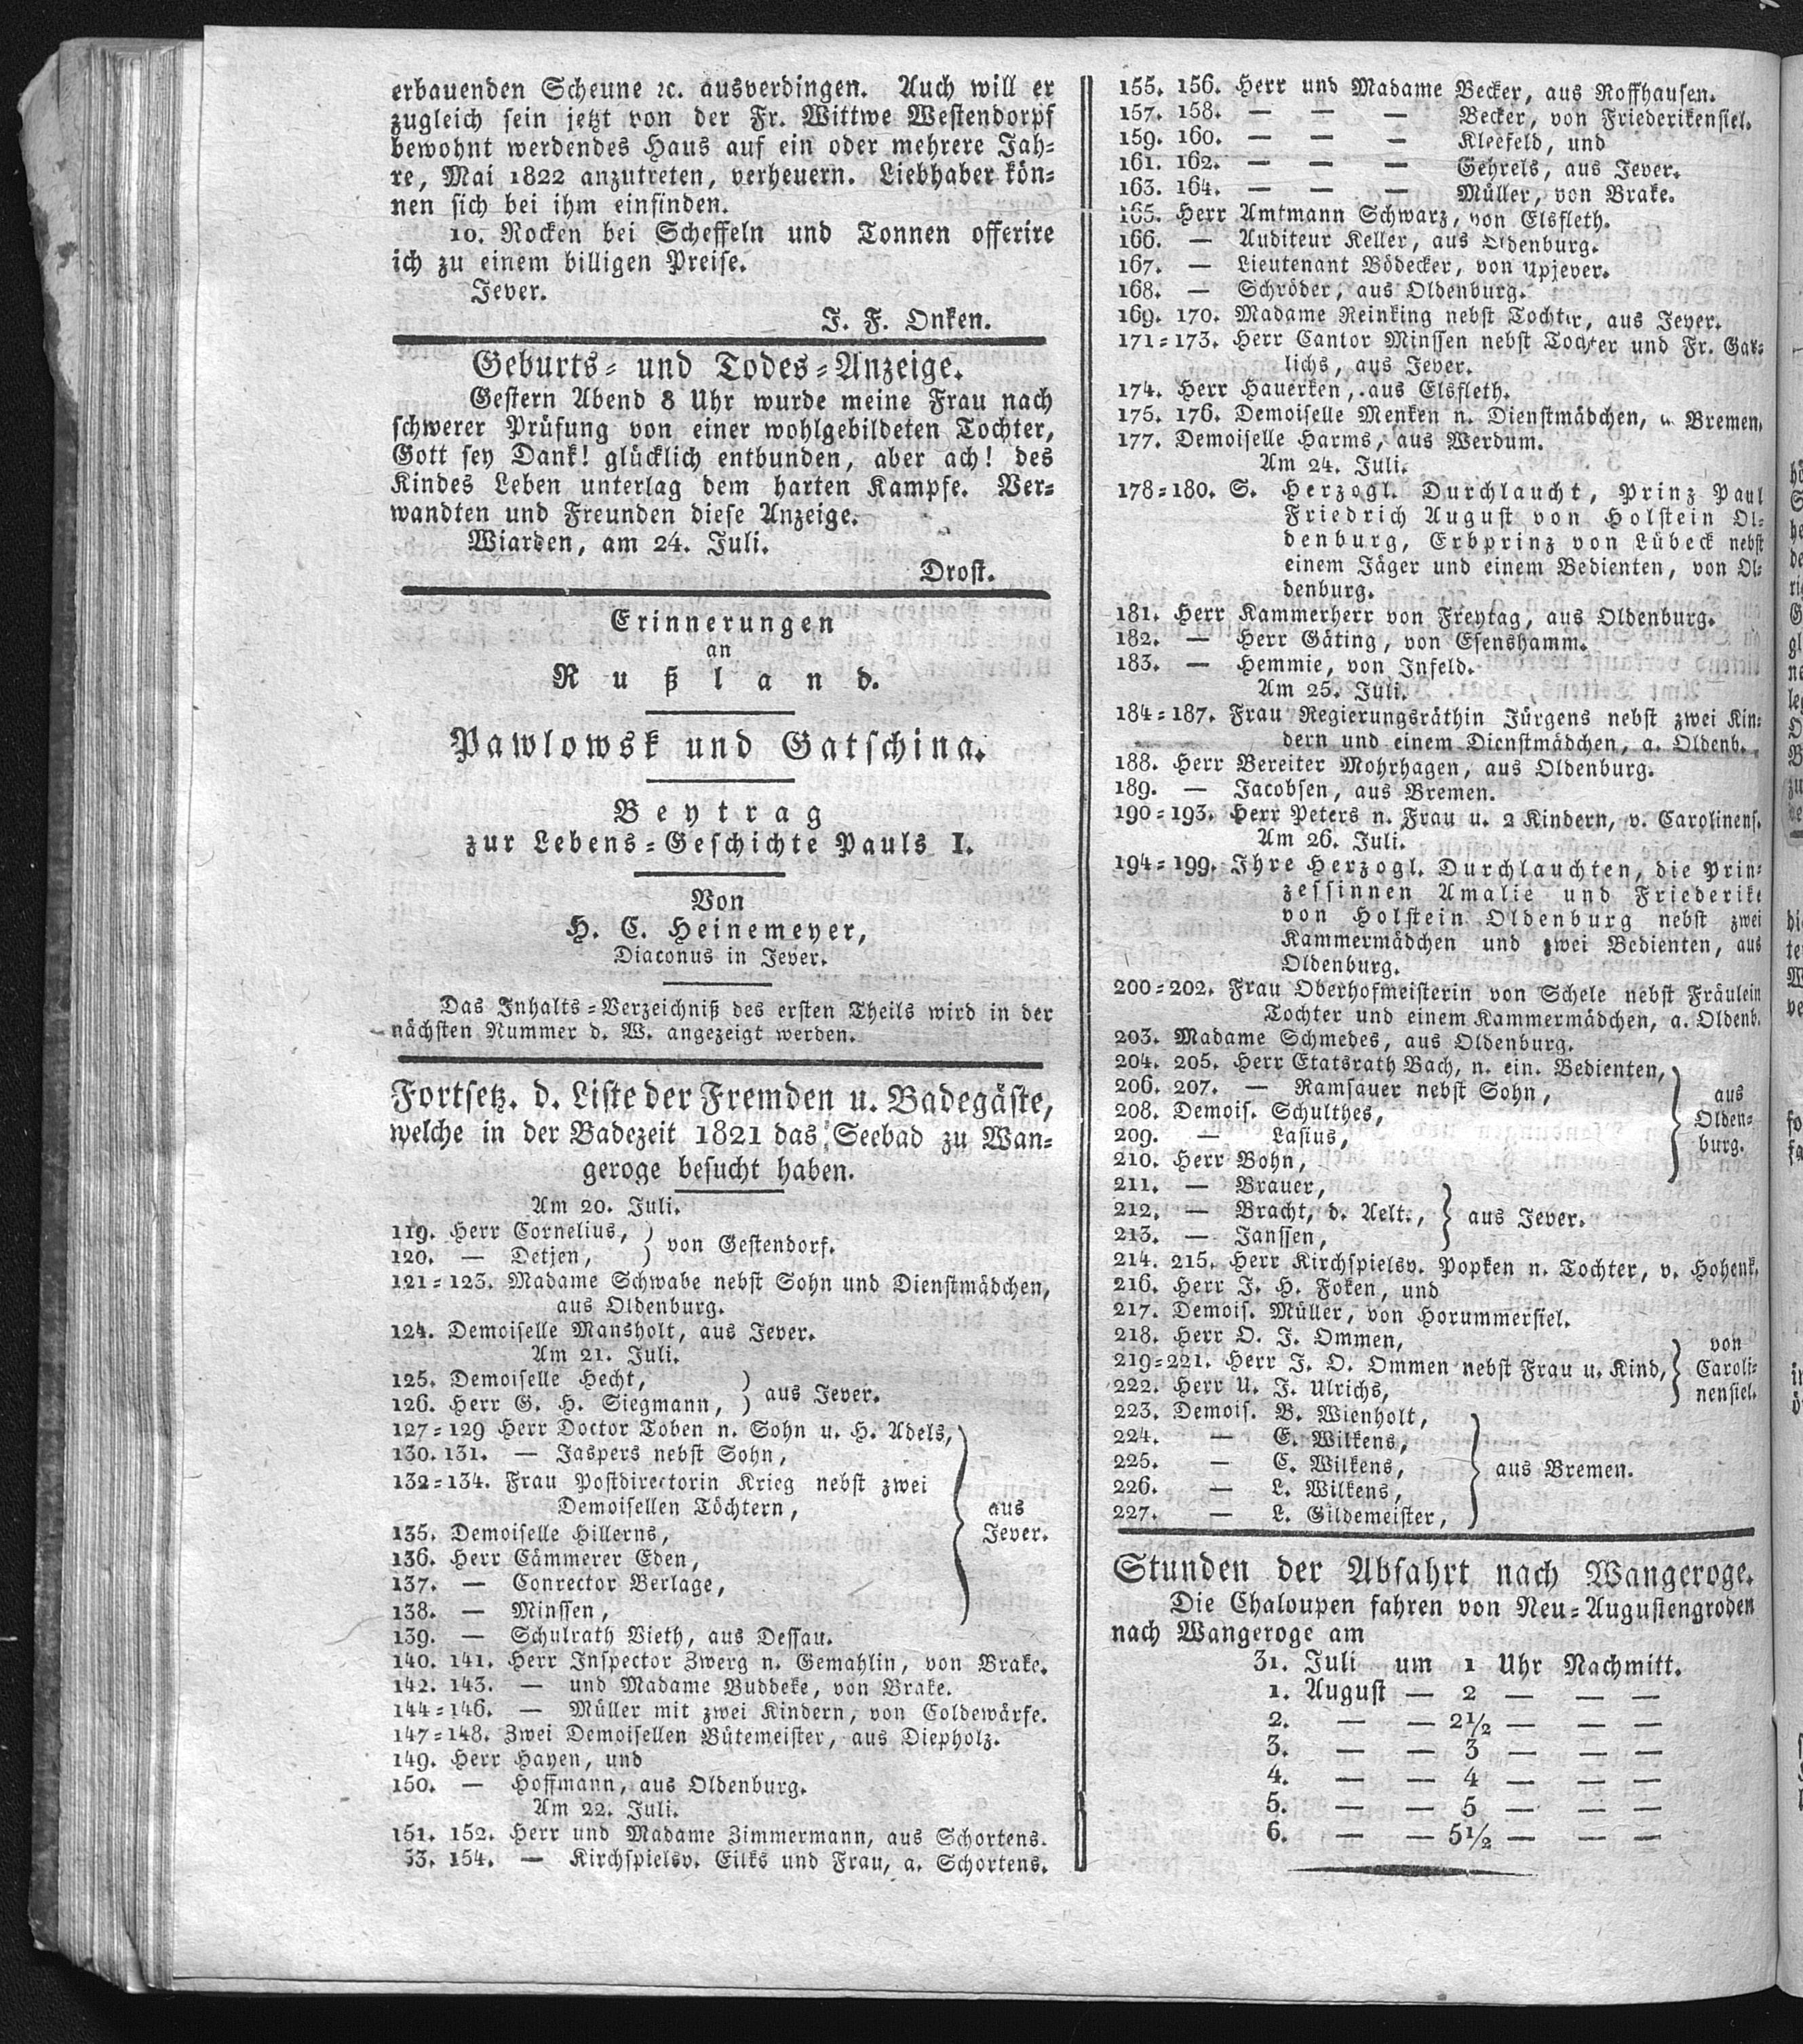 erbauenden Scheune ꝛc. ausverdingen. Auch will er
zugleich sein jetzt von der Fr. Wittwe Westendorpf
bewohnt werdendes Haus auf ein oder mehrere Jah-
re, Mai 1822 anzutreten, verheuern. Liebhaber kön-
nen sich bei ihm einfinden.
10. Rocken bei Scheffeln und Tonnen offerire
ich zu einem billigen Preise.
Jever.
J. F. Onken.
Geburts- und Todes-Anzeige.
Gestern Abend 8 Uhr wurde meine Frau nach
schwerer Prüfung von einer wohlgebildeten Tochter,
Gott sey Dank! glücklich entbunden, aber ach! des
Kindes Leben unterlag dem harten Kampfe. Ver-
wandten und Freunden diese Anzeige.
Wiarden, am 24. Juli.
Drost.
Erinnerungen
an
Rußland.
Pawlowsk und Gatschina.
Beytrag
zur Lebens-Geschichte Pauls I.
Von
H. C. Heinemeyer,
Diaconus in Jever.
Das Inhalts-Verzeichniß des ersten Theils wird in der
nächsten Nummer d. W. angezeigt werden.
Fortsetz. d. Liste der Fremden u. Badegäste,
welche in der Badezeit 1821 das Seebad zu Wan-
geroge besucht haben.
Am 20. Juli.
119. Herr Cornelius, )
120. — Detjen, ) von Gestendorf.
121-123. Madame Schwabe nebst Sohn und Dienstmädchen,
aus Oldenburg.
124. Demoiselle Mansholt, aus Jever.
Am 21. Juli.
125. Demoiselle Hecht, )
126. Herr G. H. Siegmann, ) aus Jever.
127-129 Herr Doctor Toben n. Sohn u. H. Adels,
130. 131. — Jaspers nebst Sohn,
132-134. Frau Postdirectorin Krieg nebst zwei
Demoisellen Töchtern,
135. Demoiselle Hillerns,
136. Herr Cämmerer Eden,
137. — Conrector Berlage,
138. — Minssen,
aus
Jever.
139. — Schulrath Vieth, aus Dessau.
140. 141. Herr Inspector Zwerg n. Gemahlin, von Brake.
142. 143. — und Madame Buddeke, von Brake.
144-146. — Müller mit zwei Kindern, von Coldewärfe.
147-148. Zwei Demoisellen Bütemeister, aus Diepholz.
149. Herr Hayen, und
150. — Hoffmann, aus Oldenburg.
Am 22. Juli.
151. 152. Herr und Madame Zimmermann, aus Schortens.
53. 154. — Kirchspielsv. Eilks und Frau, a. Schortens.
155. 156. Herr und Madame Becker, aus Roffhausen.
157. 158. — — — Becker, von Friederikensiel.
159. 160. — — — Kleefeld, und
161. 162. — — — Gehrels, aus Jever.
163. 164. — — — Müller, von Brake.
165. Herr Amtmann Schwarz, von Elsfleth.
166. — Auditeur Keller, aus Oldenburg.
167. — Lieutenant Bödecker, von Upjever.
168. — Schröder, aus Oldenburg.
169. 170. Madame Reinking nebst Tochter, aus Jever.
171-173. Herr Cantor Minssen nebst Tochter und Fr. Gar-
lichs, aus Jever.
174. Herr Hauerken, aus Elsfleth.
175. 176. Demoiselle Menken n. Dienstmädchen, Bremen.
177. Demoiselle Harms, aus Werdum.
Am 24. Juli.
178-180. S. Herzogl. Durchlaucht, Prinz Paul
Friedrich August von Holstein Ol-
denburg, Erbprinz von Lübeck nebst
einem Jäger und einem Bedienten, von Ol-
denburg.
181. Herr Kammerherr von Freytag, aus Oldenburg.
182. — Herr Gäting, von Esenshamm.
183. — Hemmie, von Infeld.
Am 25. Juli.
184-187. Frau Regierungsräthin Jürgens nebst zwei Kin-
dern und einem Dienstmädchen, a. Oldenb.
188. Herr Bereiter Mohrhagen, aus Oldenburg.
189. — Jacobsen, aus Bremen.
190-193. Herr Peters n. Frau u. 2 Kindern, v. Carolinens.
Am 26. Juli.
194-199. Ihre Herzogl. Durchlauchten, die Prin-
zessinnen Amalie und Friederike
von Holstein Oldenburg nebst zwei
Kammermädchen und zwei Bedienten, aus
Oldenburg.
200-202. Frau Oberhofmeisterin von Schele nebst Fräulein
Tochter und einem Kammermädchen, a. Oldenb.
203. Madame Schmedes, aus Oldenburg.
204. 205. Herr Etatsrath Bach, n. ein. Bedienten,
206. 207. — Ramsauer nebst Sohn,
208. Demois. Schulthes,
209. — Lasius,
210. Herr Bohn,
aus
Olden-
burg.
211. — Brauer,
212. — Bracht, d. Aelt., } aus Jever.
213. — Janssen,
214. 215. Herr Kirchspielsv. Popken n. Tochter, v. Hohenk.
216. Herr J. H. Foken, und
217. Demois. Müller, von Horummersiel.
218. Herr O. J. Ommen,
219-221. Herr J. O. Ommen nebst Frau u. Kind,
222. Herr U. J. Ulrichs,
von
Caroli-
nensiel.
223. Demois. B. Wienholt,
224. — E. Wilkens,
225. — C. Wilkens, } aus Bremen.
226. — L. Wilkens,
227. — L. Gildemeister,
Stunden der Abfahrt nach Wangeroge.
Die Chaloupen fahren von Neu-Augustengroden
nach Wangeroge am
31. Juli um 1 Uhr Nachmitt.
1. August — 2 — — —
2. — — 2½ — — —
3. — — 3 — — —
4. — — 4 — — —
5. — — 5 — — —
6. — — 5½ — — —